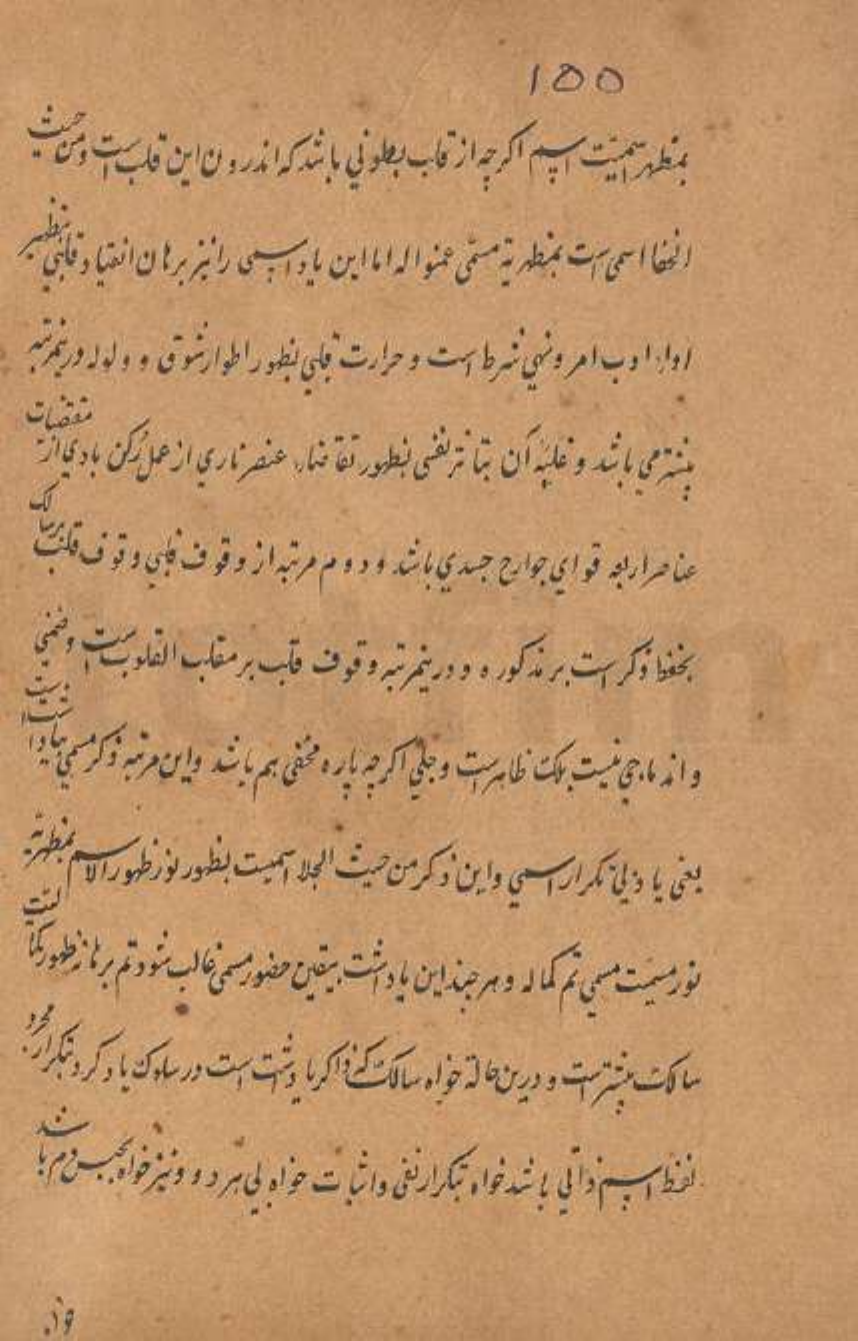 ۱۵۵
بمظهر اسمیت اسم اگرچه از قلب بطونی باشد که اندرون این قلب است و من حیث
الخفا اسمی است بمظهریة مسمّی عنواله اما این یاد اسمی را نیز برهان انقیاد قلبی بنظیر
اداء ادب امر و نهی شرط است و حرارت قلبی بظهور اطوار شوق و ولوله درینمرتبه
بیشتر می باشد و غلبۀ آن بتاثر نفسی بظهور تقاضاء عنصر ناری از عمل رُکن بادی از مقتضیات
عناصر اربعه قوای جوارح جسدی باشد و دوم مرتبه از وقوف قلبی وقوف قلب سالک
بحفظ ذکر است بر مذکوره و درینمرتبه وقوف قلب بر مقلب القلوب است و ضمنی
و اندماجی نیست بلکه ظاهر است و جلی اگرچه پاره مخفی هم باشد و این مرتبه ذکر مسمی بیادداشت است
یعنی یاد دلی تکرار اسمی و این ذکر من حیث الجلا اسمیت بظهور نور ظهور الاسم بمظهریة
نور مسمیت مسمی تم کماله و هر چند این یادداشت بیقین حضور مسمی غالب شود تم برهانه ظهور
سالک بیشتر است و درین حالة خواه سالک که ذاکر یادداشت است در سلوک یاد کرد بتکرار مجرد
لفظ اسم ذاتی باشد خواه بتکرار نفی و اثبات خواه بی هر دو و نیز خواه بحبس دم باشد